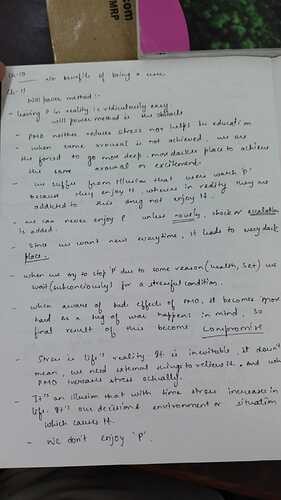 .com
MRP
Ch-10 no benefits of being a user
Ch-11
Will power method :-
- leaving P in reality is ridiculously easy
will power method is the obstacle
- PMO neither reduces stress nor helps in education
- when same arousal is not achieved, we are
the forced to go more deep, more darker place to achieve
the same arousal or excitement.
- we suffer from illusion that users watch 'p'
because they enjoy it, whereas in reality they are
addicted to this drug not enjoy it.
- we can never enjoy P unless novelty, shock or escalation
is added.
- Since we want new everytime, it leads to very dark
place.
- when we try to stop 'P' due to some reason (health, set) we
wait (subconciously) for a stressful condition.
- when aware of bad effects of PMO, it becomes more
hard as a tug of war happens in mind, so
final result of this become compromise
- Stress is life's reality It is inevitable, it doesn't
mean, we need external things to relieve it. And
PMO increases stress actually.
- It's an illusion that with time stress increases in
life. It's our decisions environment or situation
which causes it.
- We don't enjoy 'P'.